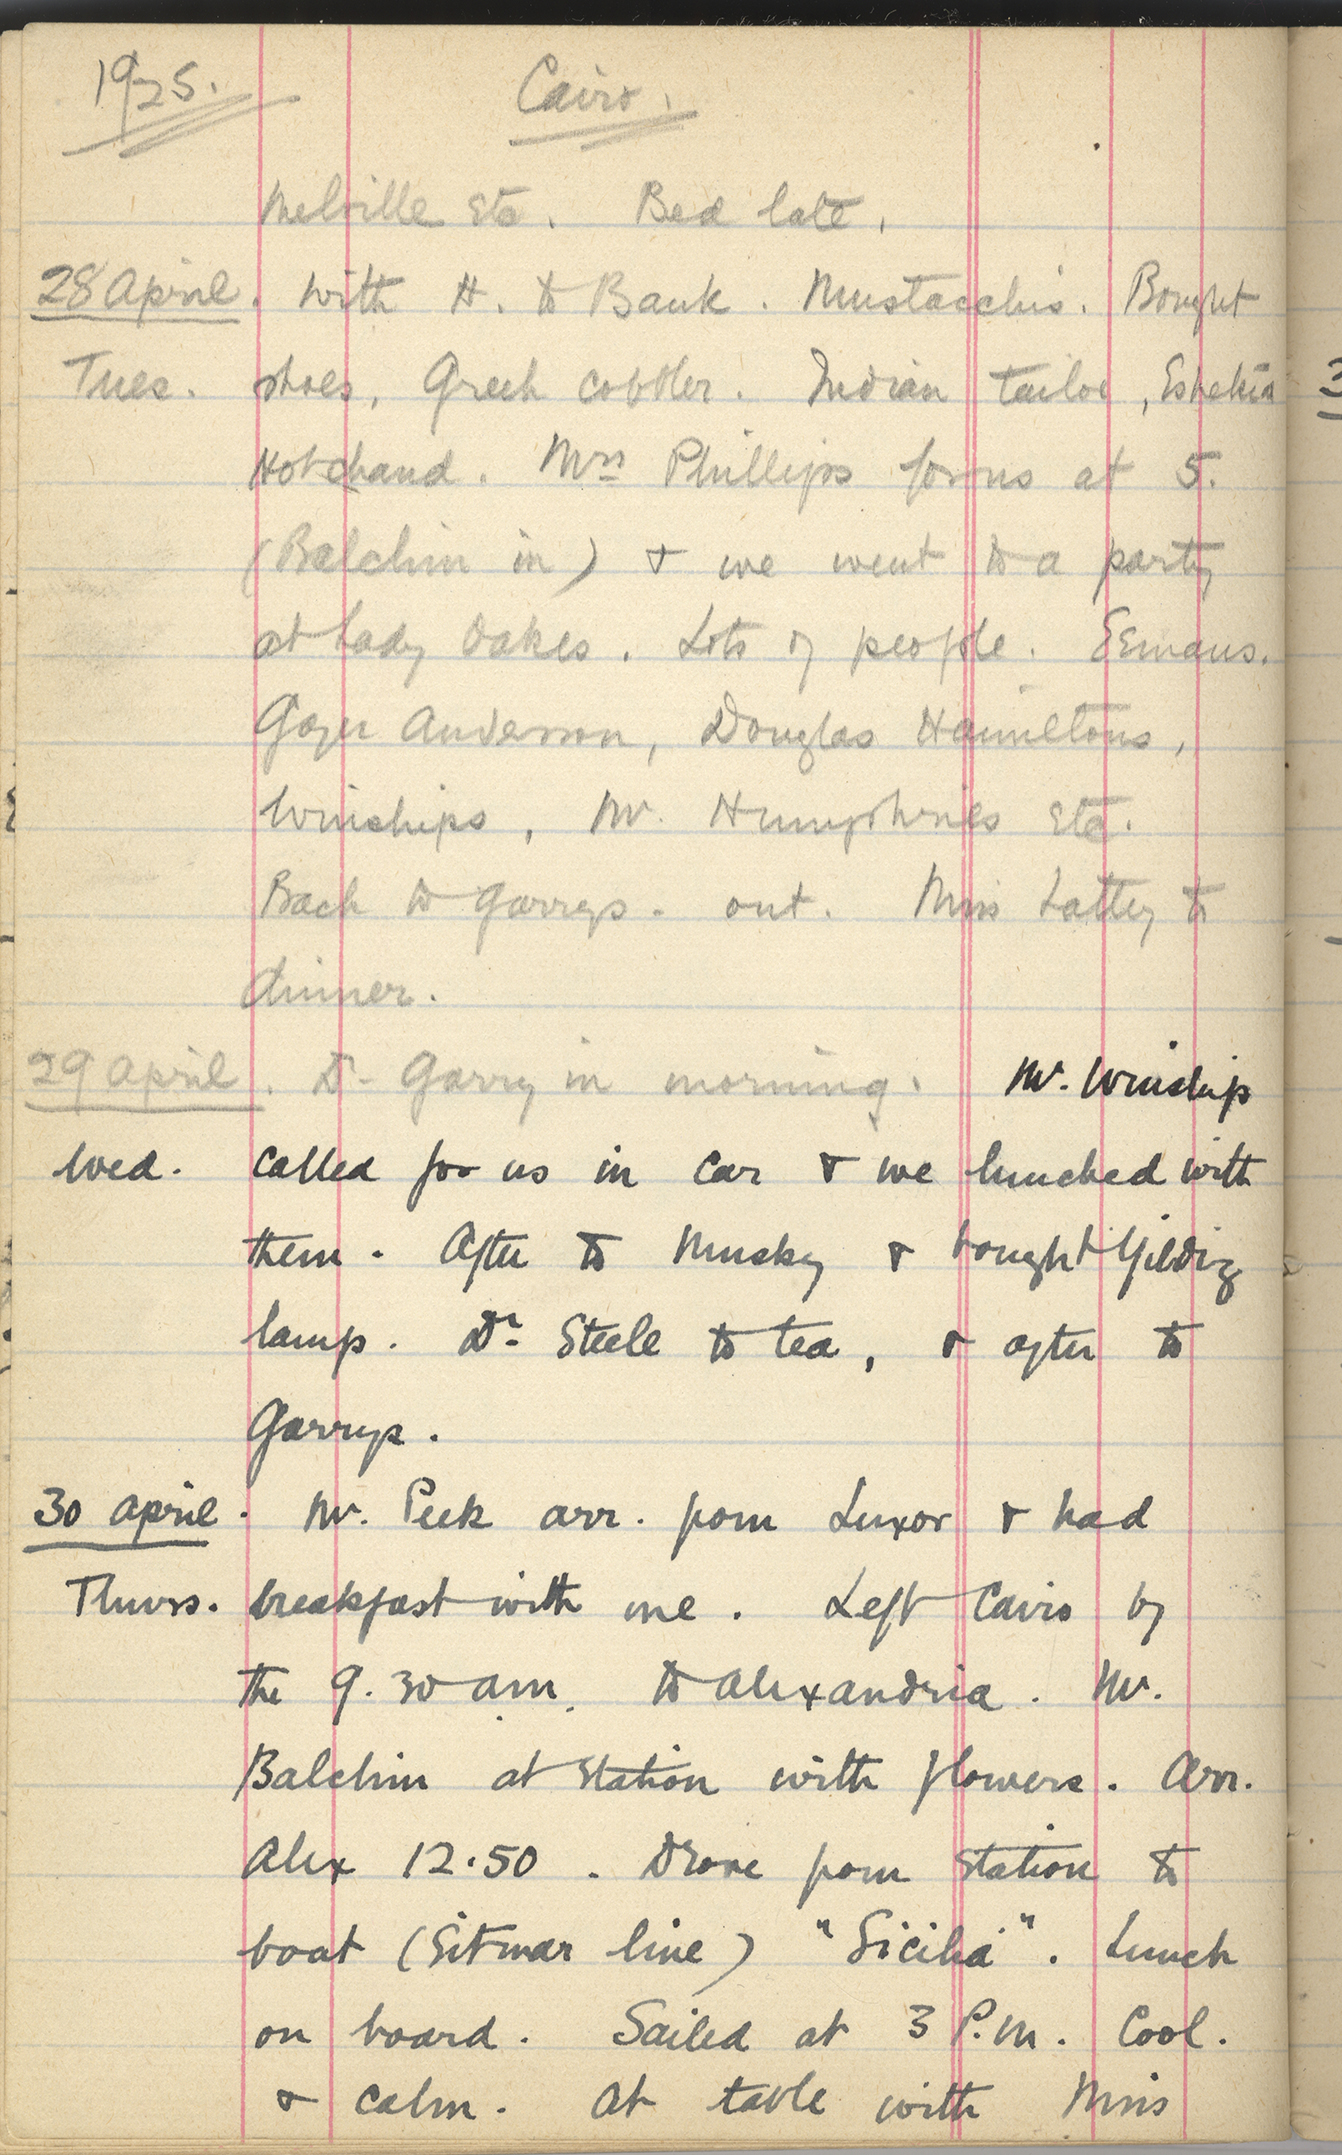 1925. Cairo.
Melville etc. Bed late.
28 April. With H. to Bank. Mustacchis. Bought
Tues. shoes, Greek cobbler. Indian tailor,
Hotchand. Mrs Phillips for us at 5.
(Balchin in) & we went to a party
at Lady Oakes. Lots of people.
Gayer Anderson, Douglas Hamiltons,
Winships, Mr. Humphries etc.
Back to Garrys - out. Miss Lattey to
dinner.
29 April. Dr Garry in morning. Mr. Winship
Wed. called for us in car & we lunched with
them. After to Musky & bought Yildiz
lamp. Dr Steele to tea, & after to
Garrys.
30 April. Mr. Peek arr. from Luxor & had
Thurs. breakfast with me. Left Cairo by
the 9.30 am. to Alexandria. Mr.
Balchin at station with flowers. Arr.
Alex 12.50. Drove from station to
boat (Sitmar line) "Sicilia". Lunch
on board. Sailed at 3 P.M. Cool.
& calm. At table with Miss